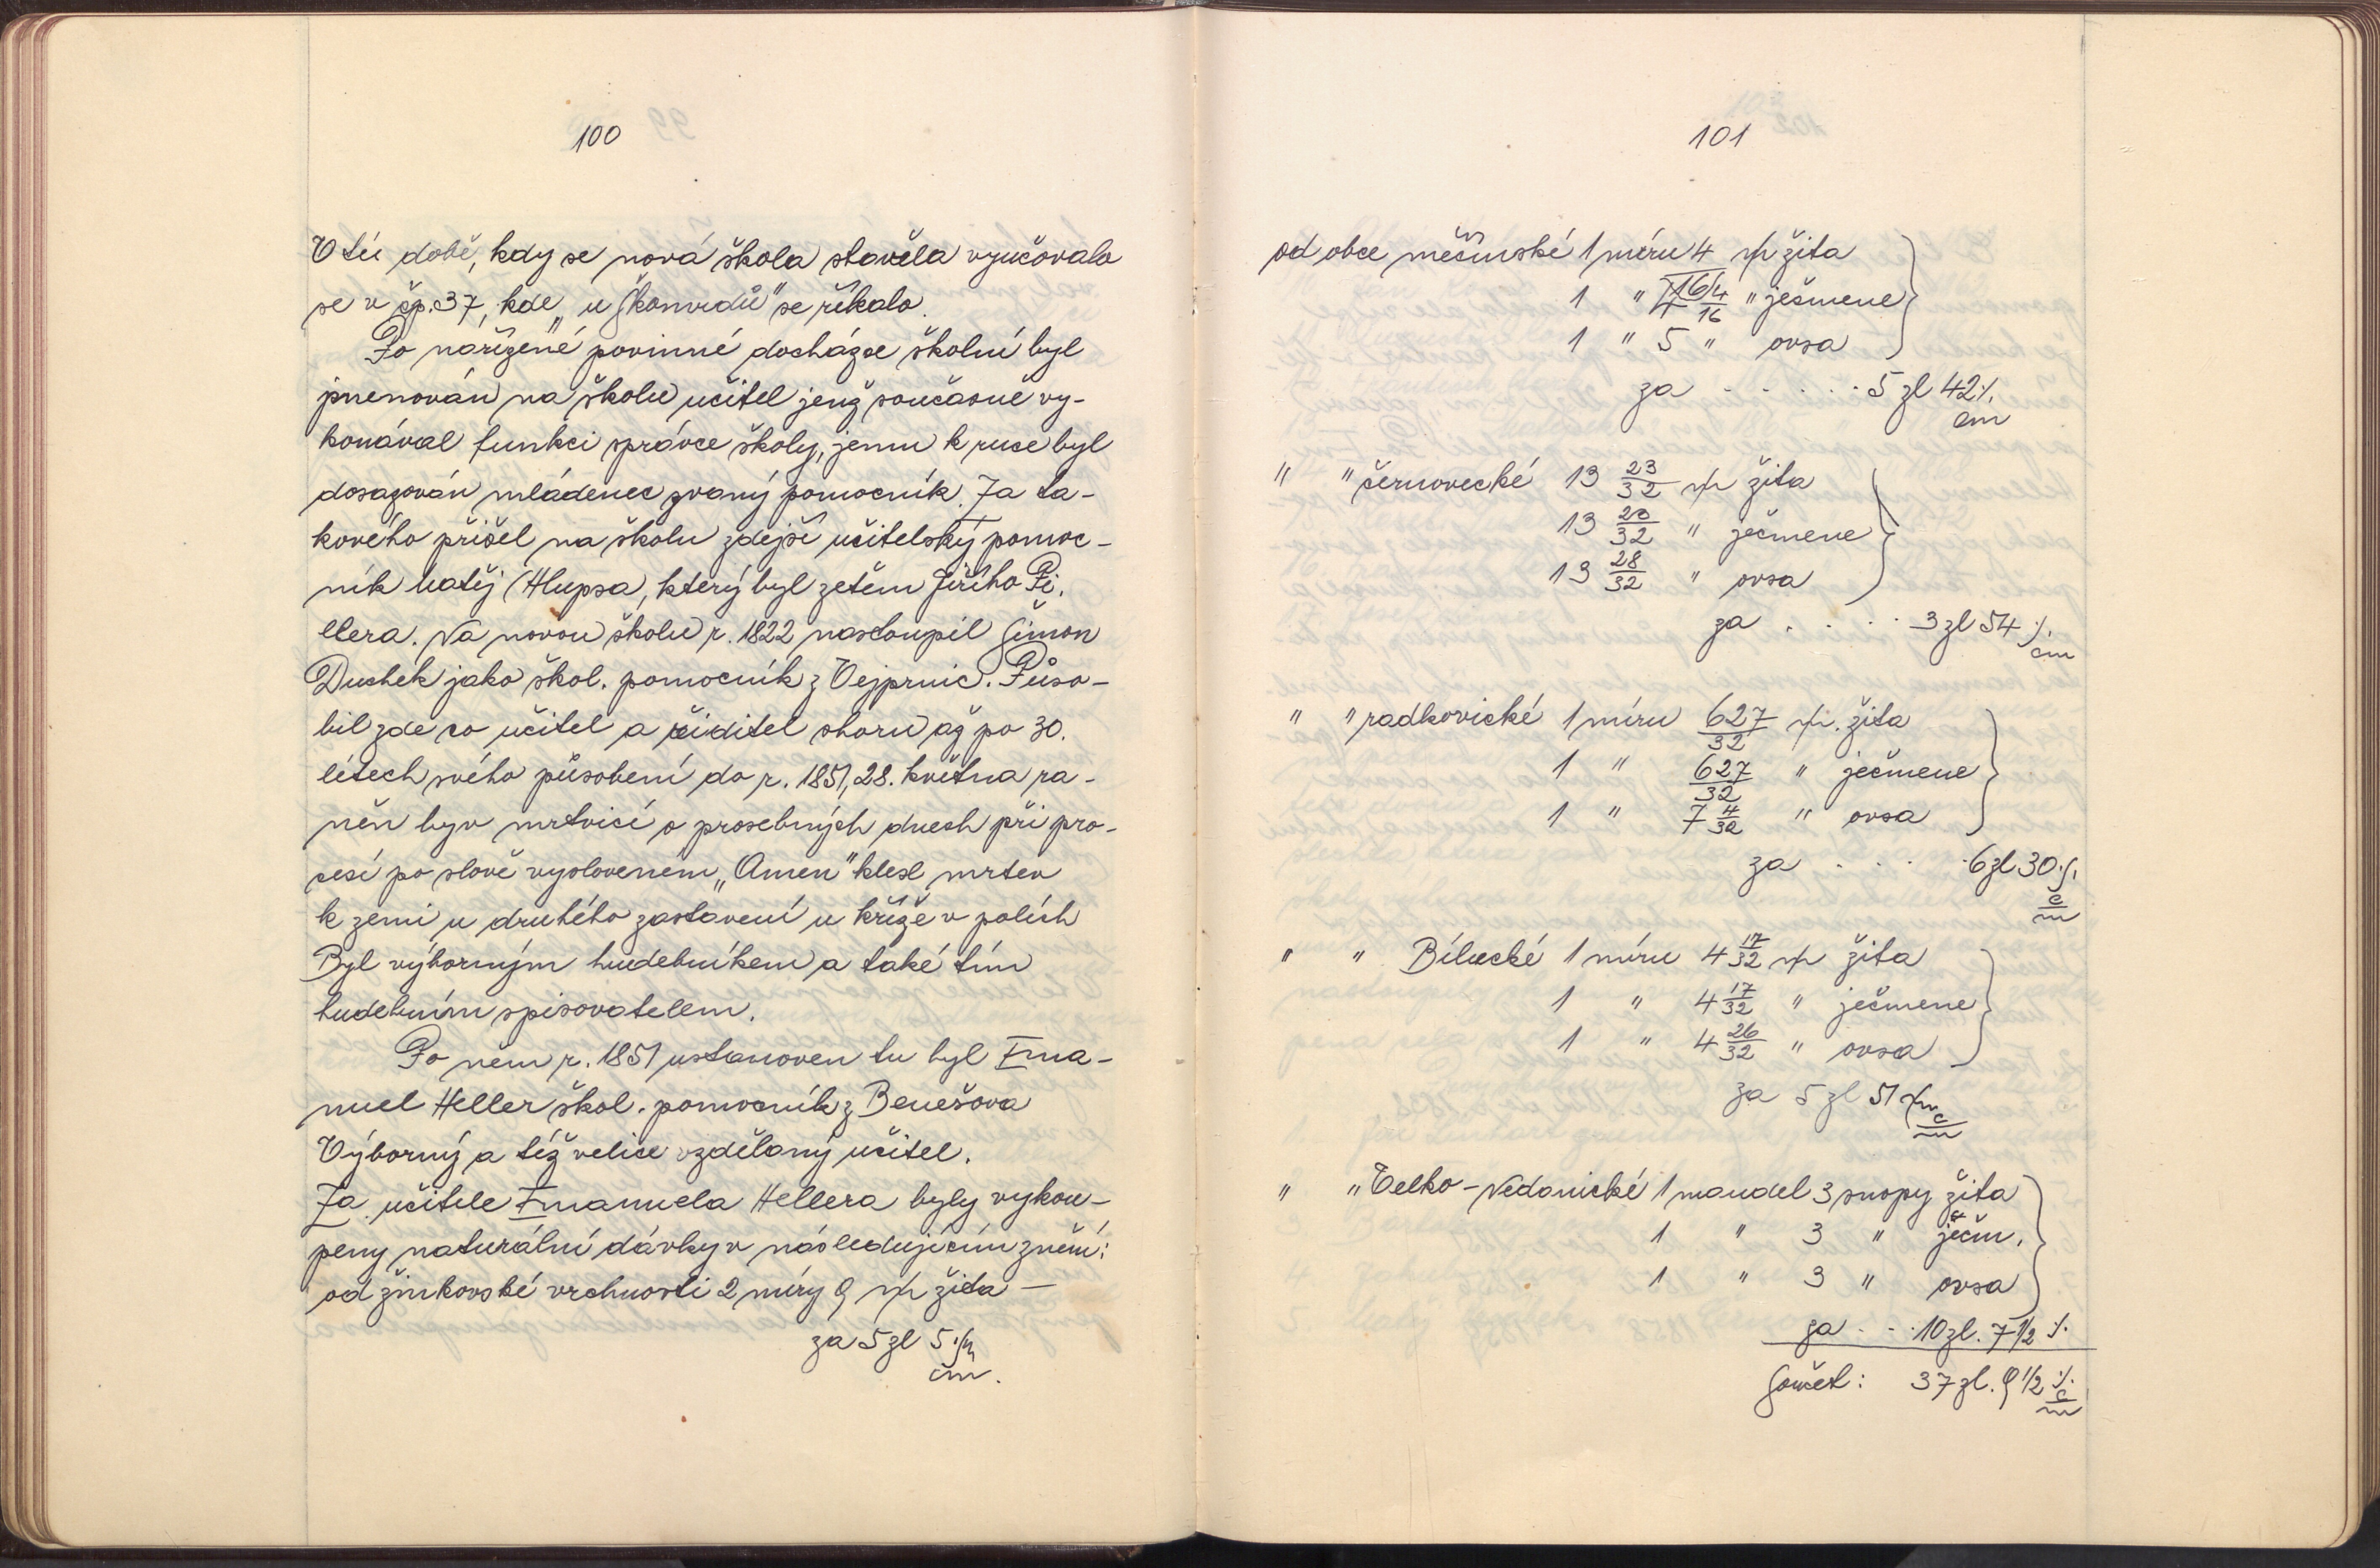 100
V té době, kdy se nová škola stavěla vyučovalo
se v čp. 37, kde „u Škomrdů" se říkalo.
Po nařízené povinné docházce školní byl
jmenován na školu učitel jenž současně vy-
konával funkci správce školy, jemu k ruce byl
dosazován mládenec zvaný pomocník. Za ta-
kového přišel na školu zdejší učitelský pomoc-
ník Matěj Hlupsa, který byl zetěm Jiřího Pi.
llera. Na novou školu r. 1822 nastoupil Šimon
Duchek jako škol. pomocník z Vejprnic. Půso-
bil zde co učitel a řiditel sboru až po 30.
létech svého působení do r. 1851, 28. května ra-
něn byv mrtvicí o prosebných dnech při pro-
cesí po slově vysloveném „Amen" klesl mrtev
k zemi u druhého zastavení u kříže v polích
Byl výborným hudebníkem a také tím
hudebním spisovatelem.
Po něm r. 1851 ustanoven tu byl Ema-
nuel Heller škol. pomocník z Benešova
Výborný a též velice vzdělaný učitel.
Za učitele Emanuela Hellera byly vykou-
peny naturální dávky v následujícím znění:
od žinkovské vrchnosti 2 míry 9 žita —
za 5 zl 5
cm.
101
od obce měčínské 1 míru 4 žita
1 " 4/16 " ječmene
1 " 5 " ovsa
za . . . . . . 5 zl 42
cm
" " černovecké 13 23/32 žita
13 23/32 " ječmene
13 28/32 " ovsa
za . . . . 3 zl 54
cm
" " radkovické 1 míru 627/32 žita
1 " 627/32 " ječmene
1 " 7 4/32 " ovsa
za . . . . 6 zl 30
c/m
" " Bílucké 1 míru 4 17/32 žita
1 " 4 17/32 " ječmene
1 " 4 26/32 " ovsa
za 5 zl 51
c/m
" " Velko-Nedanické 1 mandel 3 snopy žita
1 " 3 " ječm.
1 " 3 " ovsa
za . . . 10 zl. 7 1/2
Součet: 37 zl. 9 1/2
c/m